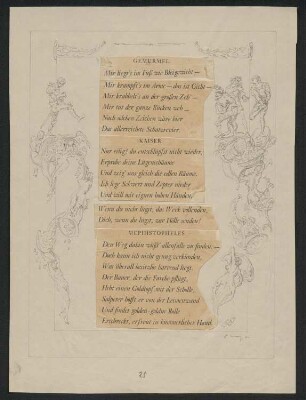 GEMURMEL
Mir liegt's im Fuß wie Bleigewicht —
Mir krampft's im Arme — das ist Gicht —
Mir krabbelt's an der großen Zeh' —
Mir tut der ganze Rücken weh —
Nach solchen Zeichen wäre hier
Das allerreichste Schatzrevier.
KAISER
Nur eilig! du entschlüpfst nicht wieder,
Erprobe deine Lügenschäume
Und zeig' uns gleich die edlen Räume.
Ich lege Schwert und Zepter nieder
Und will mit eignen hohen Händen,
Wenn du nicht lügst, das Werk vollenden,
Dich, wenn du lügst, zur Hölle senden!
MEPHISTOPHELES
Den Weg dahin wüßt' allenfalls zu finden —
Doch kann ich nicht genug verkünden,
Was überall besitzlos harrend liegt.
Der Bauer, der die Furche pflügt,
Hebt einen Goldtopf mit der Scholle,
Salpeter hofft er von der Leimenwand
Und findet golden-goldne Rolle
Erschreckt, erfreut in kümmerlicher Hand.